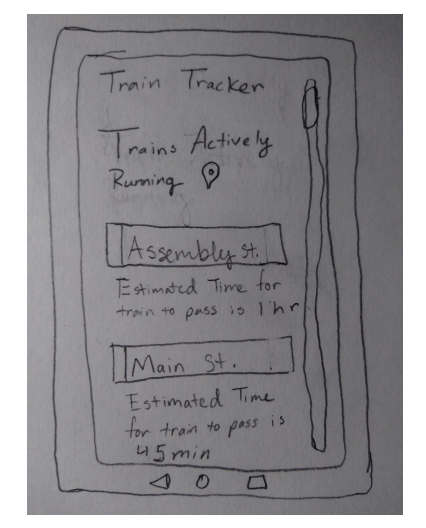 Train Tracker
Trains Actively
Running
Assembly St.
Estimated Time for
train to pass is 1 hr
Main St.
Estimated Time
for train to pass is
45 min